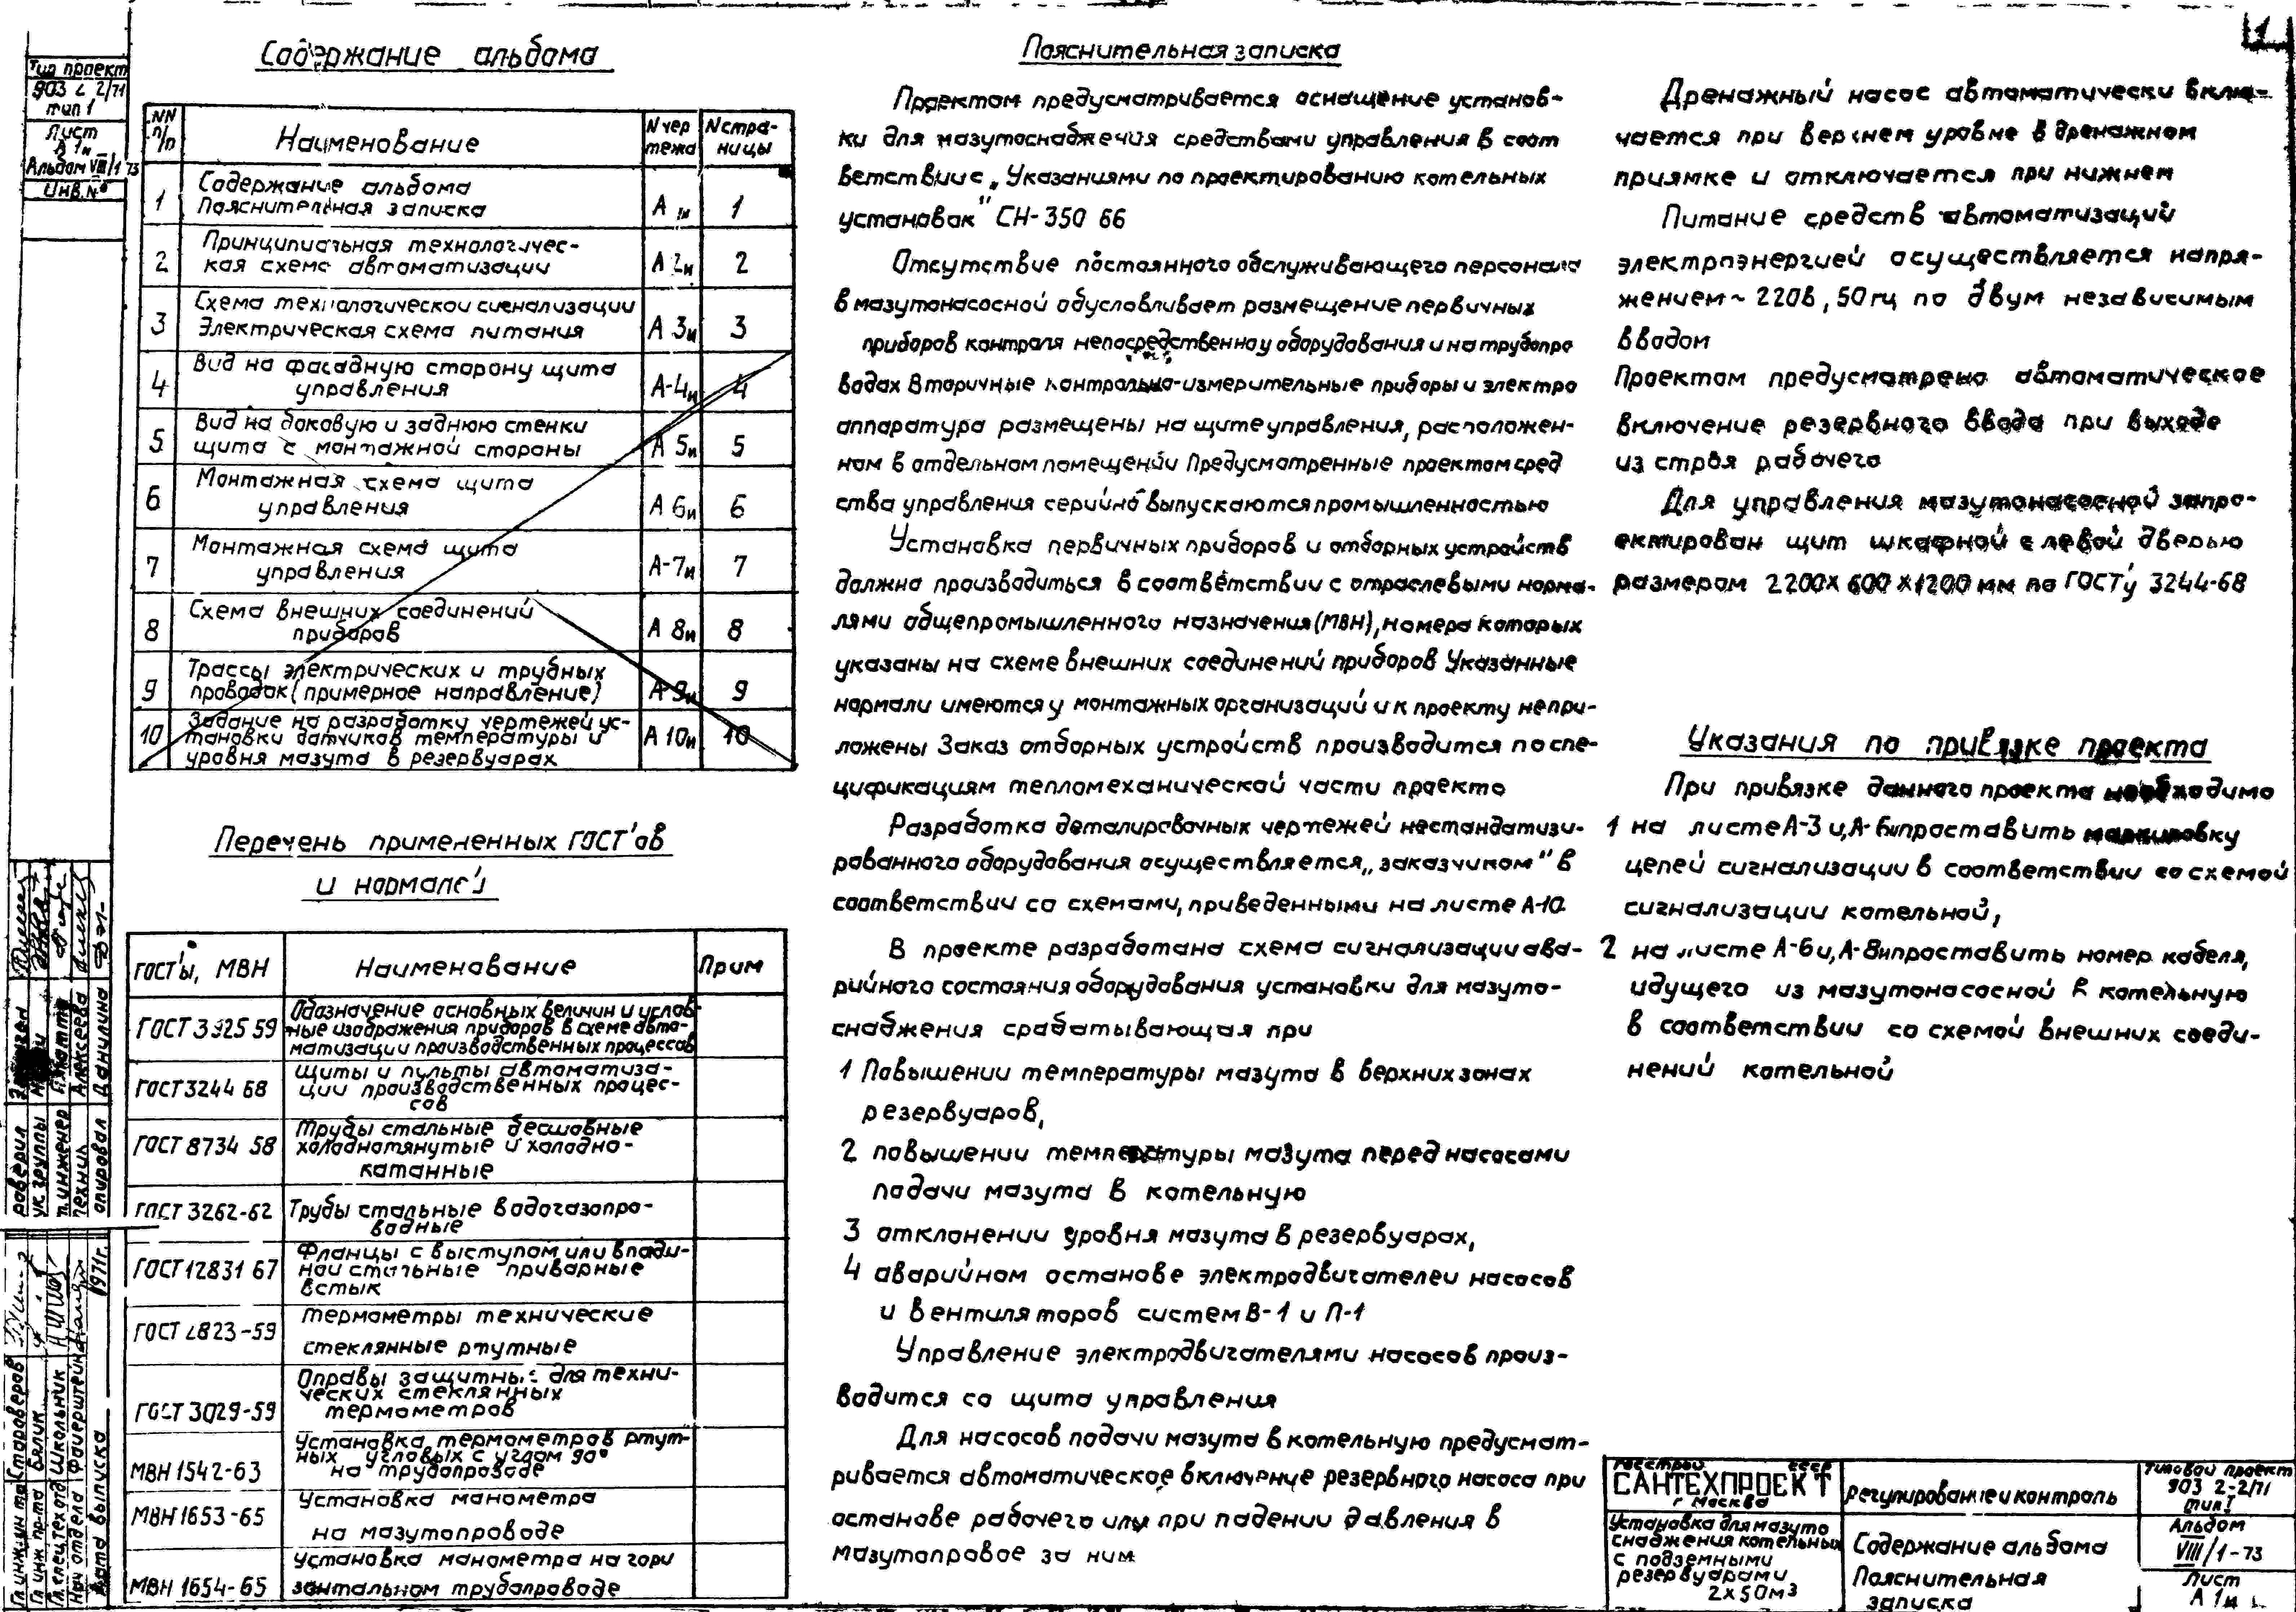 1
Тип проект
903 2 2/71
тип 1
Лист
А 1и
Альбом VIII/1 73
Инв.№
Содержание альбома
NN п/п
Наименование
N чертежа
N страницы
1
Содержание альбома
Пояснительная записка
А 1и
1
2
Принципиальная технологичес-
кая схема автоматизации
А 2и
2
3
Схема технологической сигнализации
Электрическая схема питания
А 3и
3
4
Вид на фасадную сторону щита
управления
А-4и
4
5
Вид на боковую и заднюю стенки
щита с монтажной стороны
А 5и
5
6
Монтажная схема щита
управления
А 6и
6
7
Монтажная схема щита
управления
А-7и
7
8
Схема внешних соединений
приборов
А 8и
8
9
Трассы электрических и трубных
проводок (примерное направление)
А 9и
9
10
Задание на разработку чертежей ус-
тановки датчиков температуры и
уровня мазута в резервуарах
А 10и
10
Перечень примененных ГОСТ'ов
и нормалей
ГОСТ'ы, МВН
Наименование
Прим
ГОСТ 3925 59
Обозначение основных величин и услов-
ные изображения приборов в схеме авто-
матизации производственных процессов
ГОСТ 3244 68
Щиты и пульты автоматиза-
ции производственных процес-
сов
ГОСТ 8734 58
Трубы стальные бесшовные
холоднотянутые и холодно-
катанные
ГОСТ 3262-62
Трубы стальные водогазопро-
водные
ГОСТ 12831 67
Фланцы с выступом или впади-
ной стальные приварные
встык
ГОСТ 2823-59
Термометры технические
стеклянные ртутные
ГОСТ 3029-59
Оправы защитные для техни-
ческих стеклянных
термометров
МВН 1542-63
Установка термометров ртут-
ных угловых с углом 90°
на трубопроводе
МВН 1653-65
Установка манометра
на мазутопроводе
МВН 1654-65
Установка манометра на гори
зонтальном трубопроводе
Пояснительная записка
Проектом предусматривается оснащение установ-
ки для мазутоснабжения средствами управления в соот
ветствии с „Указаниями по проектированию котельных
установок" СН-350 66
Отсутствие постоянного обслуживающего персонала
в мазутонасосной обусловливает размещение первичных
приборов контроля непосредственно у оборудования и на трубопро
водах Вторичные контрольно-измерительные приборы и электро
аппаратура размещены на щите управления, расположен-
ном в отдельном помещении Предусмотренные проектом сред
ства управления серийно выпускаются промышленностью
Установка первичных приборов и отборных устройств
должна производиться в соответствии с отраслевыми норма-
лями общепромышленного назначения (МВН), номера которых
указаны на схеме внешних соединений приборов Указанные
нормали имеются у монтажных организаций и к проекту непри-
ложены Заказ отборных устройств производится по спе-
цификациям тепломеханической части проекта
Разработка деталировочных чертежей нестандатизи-
рованного оборудования осуществляется „заказчиком" в
соответствии со схемами, приведенными на листе А-10
В проекте разработана схема сигнализации ава-
рийного состояния оборудования установки для мазуто-
снабжения срабатывающая при
1 Повышении температуры мазута в верхних зонах
резервуаров,
2 повышении температуры мазута перед насосами
подачи мазута в котельную
3 отклонении уровня мазута в резервуарах,
4 аварийном останове электродвигателей насосов
и вентиляторов систем В-1 и П-1
Управление электродвигателями насосов произ-
водится со щита управления
Для насосов подачи мазута в котельную предусмат-
ривается автоматическое включение резервного насоса при
останове рабочего или при падении давления в
мазутопровое за ним
Дренажный насос автоматически вклю-
чается при верхнем уровне в дренажном
приямке и отключается при нижнем
Питание средств автоматизаций
электроэнергией осуществляется напря-
жением ~ 220в, 50 гц по двум независимым
вводом
Проектом предусмотрено автоматическое
включение резервного ввода при выходе
из строя рабочего
Для управления мазутонасосной запро-
ектирован щит шкафной с левой дверью
размером 2200х600х1200 мм по ГОСТ'у 3244-68
Указания по привязке проекта
При привязке данного проекта необходимо
1 на листе А-3 и, А-6и проставить маркировку
цепей сигнализации в соответствии со схемой
сигнализации котельной,
2 на листе А-6и, А-8и проставить номер кабеля,
идущего из мазутонасосной в котельную
в соответствии со схемой внешних соеди-
нений котельной
Госстрой СССР
САНТЕХПРОЕКТ
г Москва
Установка для мазуто
снабжения котельных
с подземными
резервуарами
2х50м3
Регулирование и контроль
Содержание альбома
Пояснительная
записка
Типовой проект
903 2-2/71
тип I
Альбом
VIII/1-73
Лист
А 1и
Проверил
Рук. группы
Ст. инженер
Техник
Алексеева
Копировал
Данилина
Гл инж ин та
Староверов
Гл инж пр-та
Белик
Гл. спец. тех отд
Школьник
Нач отдела
Файерштейн
Дата выпуска
1971г.